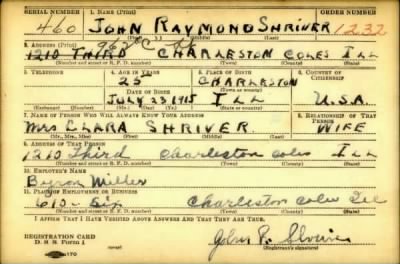 SERIAL NUMBER 1. NAME (Print) ORDER NUMBER
460 JOHN RAYMOND SHRIVER 1232
2. ADDRESS (Print)
1210 THIRD CHARLESTON COLES ILL
(Number and street or R. F. D. number) (Town) (County) (State)
3. TELEPHONE 4. AGE IN YEARS 5. PLACE OF BIRTH 6. COUNTRY OF CITIZENSHIP
25 CHARLESTON
DATE OF BIRTH
JULY 23 1915 ILL U.S.A.
(Exchange) (Number) (Mo.) (Day) (Yr.) (State or country)
7. NAME OF PERSON WHO WILL ALWAYS KNOW YOUR ADDRESS 8. RELATIONSHIP OF THAT PERSON
MRS CLARA SHRIVER WIFE
(Mr., Mrs., Miss) (First) (Middle) (Last)
9. ADDRESS OF THAT PERSON
1210 Third Charleston Coles Ill
(Number and street or R. F. D. number) (Town) (County) (State)
10. EMPLOYER'S NAME
Byron Miller
11. PLACE OF EMPLOYMENT OR BUSINESS
615 - Six Charleston Coles Ill
(Number and street or R. F. D. number) (Town) (County) (State)
I AFFIRM THAT I HAVE VERIFIED ABOVE ANSWERS AND THAT THEY ARE TRUE.
REGISTRATION CARD
D. S. S. Form 1
John R. Shriver
(Registrant's signature)